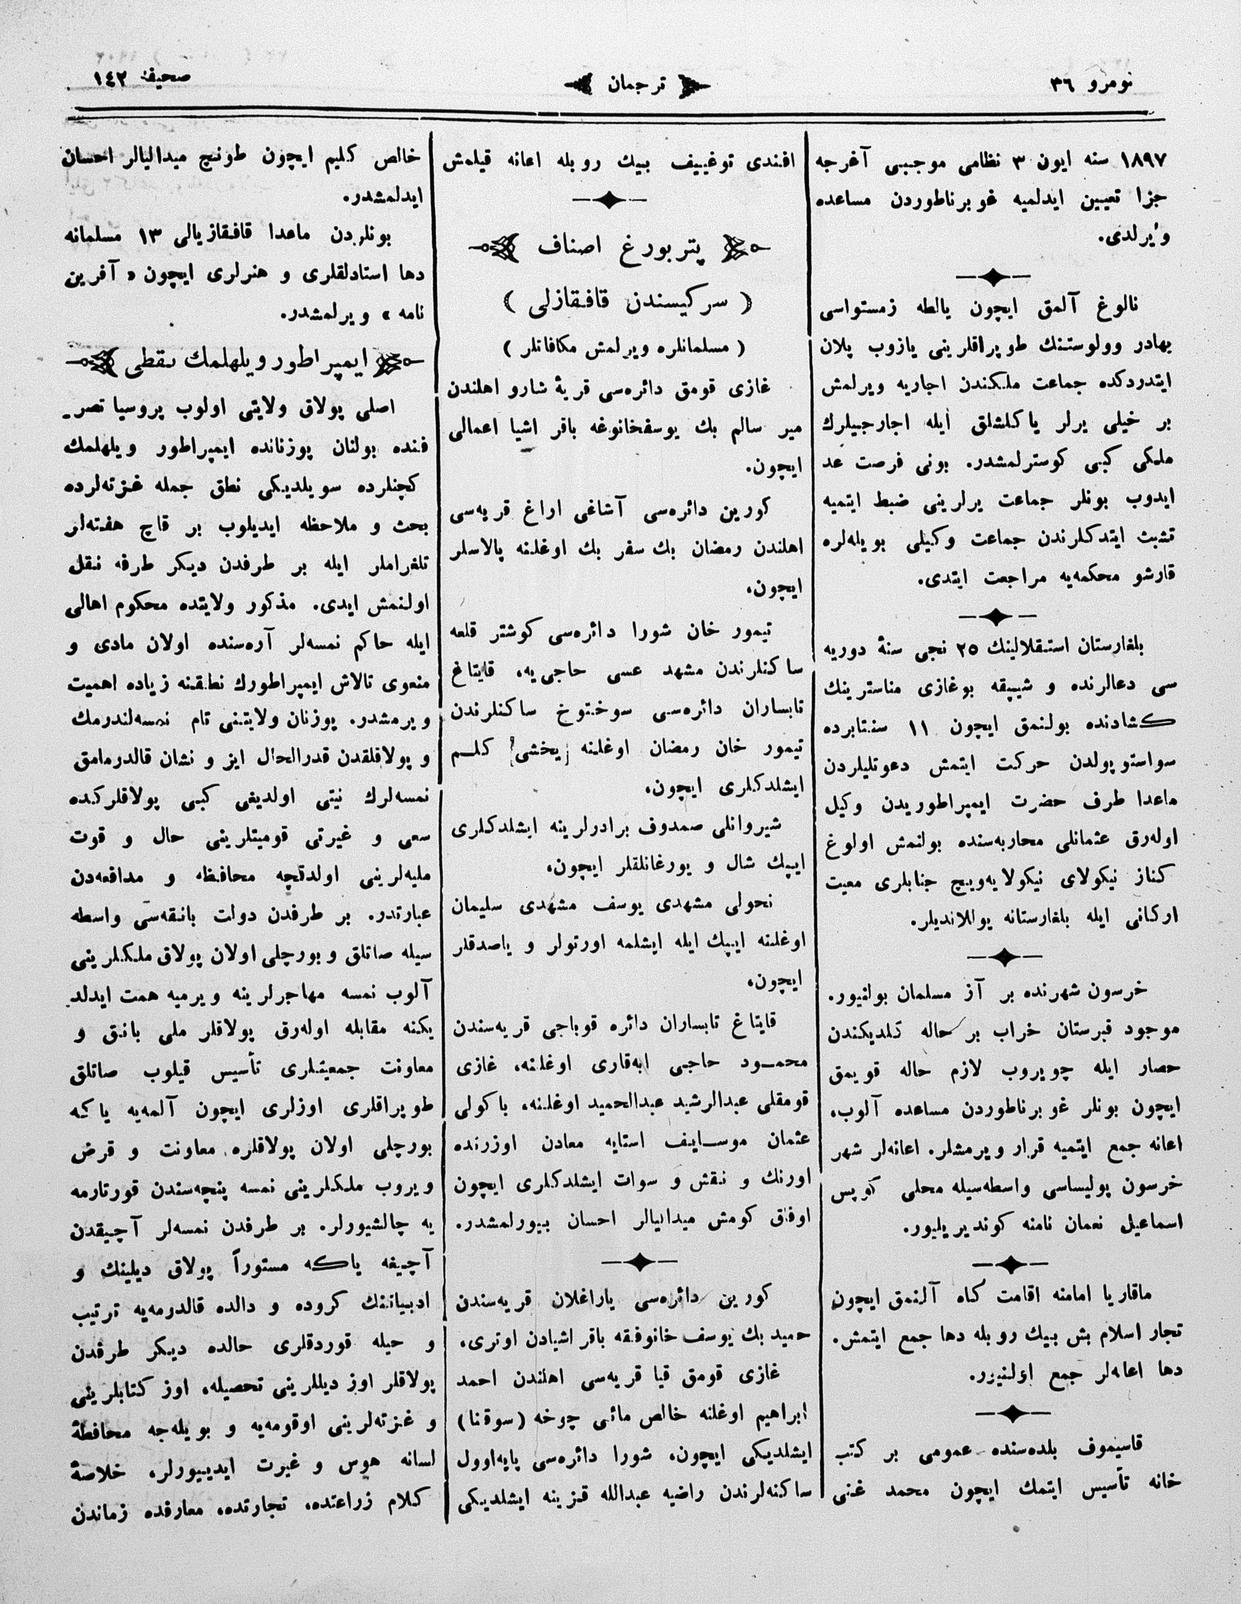 نومرو ٣٦
ترجمان
صحیفه ١٤٢
١٨٩٧ سنه ایون ٣ نظامی موجبی آغرجه
جزا تعیین ایدلمیه غوبرناطوردن مساعده
ویرلدی.
نالوغ آلمق ایچون یالطه زمستواسی
بهادر وولوستنك طوپراقلرینی یازوب پلان
ایتدردكده جماعت ملكندن اجاریه ویرلمش
بر خیلی یرلر یاكلشلق ایله اجارجیلرك
ملكی كبی كوسترلمشدر. بونی فرصت عد
ایدوب بونلر جماعت یرلرینی ضبط ایتمیه
تشبث ایتدكلرندن جماعت وكیلی بویله‌لره
قارشو محكمه‌یه مراجعت ایتدی.
بلغارستان استقلالینك ٢٥ نجی سنۀ دوریه
سی دعالرنده و شیپقه بوغازی مناسترینك
كشادنده بولنمق ایچون ١١ سنتابرده
سواستوپولدن حركت ایتمش دعوتلیلردن
ماعدا طرف حضرت ایمپراطوریدن وكیل
اوله‌رق عثمانلی محاربه‌سنده بولنمش اولوغ
كناز نیكولای نیكولایه‌ویچ جنابلری معیت
اركانی ایله بلغارستانه یوللاندیلر.
خرسون شهرنده بر آز مسلمان بولنیور.
موجود قبرستان خراب بر حاله كلدیكندن
حصار ایله چویروب لازم حاله قویمق
ایچون بونلر غوبرناطوردن مساعده آلوب،
اعانه جمع ایتمیه قرار ویرمشلر. اعانه‌لر شهر
خرسون پولیساسی واسطه‌سیله محلی كوپس
اسماعیل نعمان نامنه كوندیریلیور.
ماقاریا امامنه اقامت كاه آلنمق ایچون
تجار اسلام بش بیك روبله دها جمع ایتمش.
دها اعانه‌لر جمع اولنیور.
قاسیموف بلده‌سنده عمومی بر كتب
خانه تأسیس ایتمك ایچون محمد غنی
افندی توغییف بیك روبله اعانه قیلمش
پتربورغ اصناف
( سركیسندن قافقازلی )
( مسلمانلره ویرلمش مكافاتلر )
غازی قومق دائره‌سی قریۀ شارو اهلندن
میر سالم بك یوسفخانوغه باقر اشیا اعمالی
ایچون.
كورین دائره‌سی آشاغی اراغ قریه‌سی
اهلندن رمضان بك سفر بك اوغلنه پالاسلر
ایچون،
تیمور خان شورا دائره‌سی كوشتر قلعه
ساكنلرندن مشهد عسی حاجی‌یه، قایتاغ
تابساران دائره‌سی سوختوخ ساكنلرندن
تیمور خان رمضان اوغلنه یخشی كلیم
ایشلدكلری ایچون،
شیروانلی صمدوف برادرلرینه ایشلدكلری
ایپك شال و یورغانلقلر ایچون،
نحولی مشهدی یوسف مشهدی سلیمان
اوغلنه ایپك ایله ایشلمه اورتولر و یاصدقلر
ایچون،
قایتاغ تابساران دائره قوباچی قریه‌سندن
محمود حاجی ابه‌قاری اوغلنه، غازی
قومقلی عبدالرشید عبدالحمید اوغلنه، باكولی
عثمان موساییف استایه معادن اوزرنده
اورنك و نقش و سوات ایشلدكلری ایچون
اوفاق كومش میدالیالر احسان بیورلمشدر.
كورین دائره‌سی یاراغلان قریه‌سندن
حمید بك یوسف خانوفقه باقر اشیادن اوتری،
غازی قومق قیا قریه‌سی اهلندن احمد
ابراهیم اوغلنه خالص مائی چوخه (سوقنا)
ایشلدیكی ایچون، شورا دائره‌سی پایه‌اوول
ساكنه‌لرندن راضیه عبدالله قزینه ایشلدیكی
خالص كلیم ایچون طونچ میدالیالر احسان
ایدلمشدر.
بونلردن ماعدا قافقازیالی ١٣ مسلمانه
دها استادلقلری و هنرلری ایچون « آفرین
نامه » ویرلمشدر.
ایمپراطور ویلهلمك نطقی
اصلی پولاق ولایتی اولوب پروسیا تصر-
فنده بولنان پوزنانده ایمپراطور ویلهلمك
كچنلرده سویلدیكی نطق جمله غزته‌لرده
بحث و ملاحظه ایدیلوب بر قاچ هفته‌لر
تلغراملر ایله بر طرفدن دیكر طرفه نقل
اولنمش ایدی. مذكور ولایتده محكوم اهالی
ایله حاكم نمسه‌لر آره‌سنده اولان مادی و
منعوی تالاش ایمپراطورك نطقنه زیاده اهمیت
ویرمشدر. پوزنان ولایتنی تام نمسه‌لندرمك
و پولاقلقدن قدرالحال ایز و نشان قالدرمامق
نمسه‌لرك نیتی اولدیغی كبی پولاقلركده
سعی و غیرتی قومیتلرینی حال و قوت
ملیه‌لرینی اولدقچه محافظه و مدافعه‌دن
عبارتدر. بر طرفدن دولت بانقه‌سی واسطه
سیله صاتلق و بورچلی اولان پولاق ملكلرینی
آلوب نمسه مهاجرلرینه ویرمیه همت ایدلد
یكنه مقابله اوله‌رق پولاقلر ملی بانق و
معاونت جمعیتلری تأسیس قیلوب صاتلق
طوپراقلری اوزلری ایچون آلمه‌یه یاكه
بورچلی اولان پولاقلره معاونت و قرض
ویروب ملكلرینی نمسه پنچه‌سندن قورتارمه
یه چالشیورلر. بر طرفدن نمسه‌لر آچیقدن
آچیغه یاكه مستوراً پولاق دیلینك و
ادبیاتنك كروده و دالده قالدورمه‌یه ترتیب
و حیله قوردقلری حالده دیكر طرفدن
پولاقلر اوز دیللرینی تحصیله، اوز كتابلرینی
و غزته‌لرینی اوقومه‌یه و بویله‌جه محافظۀ
لسانه هوس و غیرت ایدییورلر، خلاصۀ
كلام زراعتده، تجارتده، معارفده زماندن